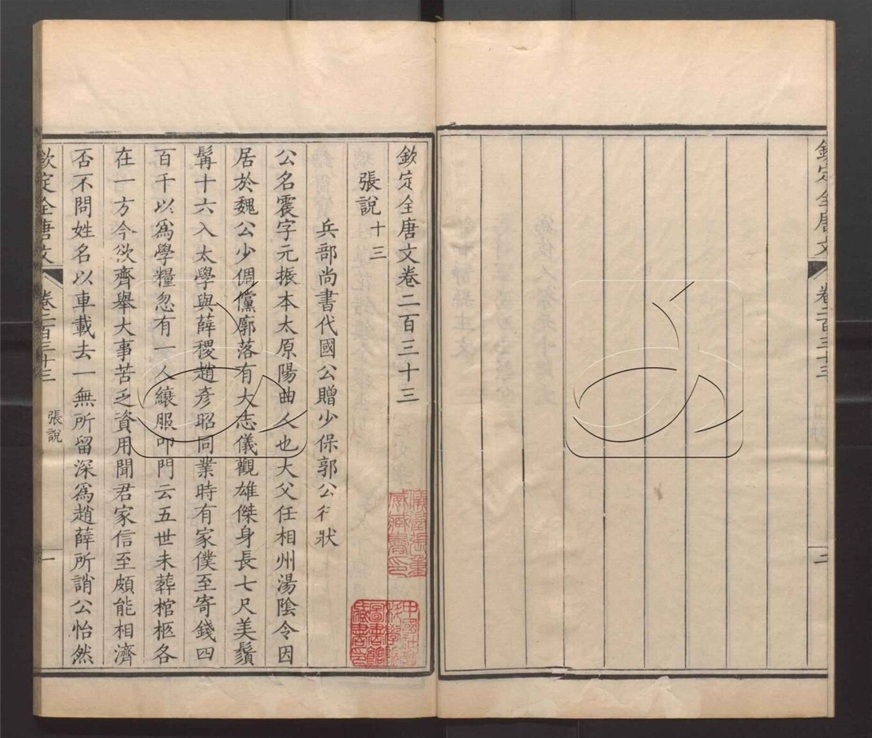 欽定全唐文
卷二百三十三
二
欽定全唐文卷二百三十三
張說十三
兵部尚書代國公贈少保郭公行狀
公名震字元振本太原陽曲人也大父任相州湯陰令因
居於魏公少倜儻廓落有大志儀觀雄傑身長七尺美鬚
髯十六入太學與薛稷趙彥昭同業時有家僕至寄錢四
百千以爲學糧忽有一人縗服叩門云五世未葬棺柩各
在一方今欲齊舉大事苦乏資用聞君家信至頗能相濟
否不問姓名以車載去一無所留深爲趙薛所誚公怡然
欽定全唐文
卷二百三十三
張說
一